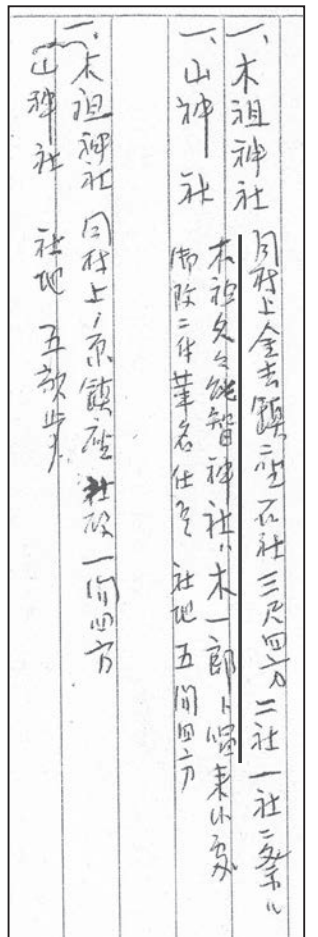 一、木祖神社 同村上金吉鎮座 石社三尺四方 二社 一社ニ祭ル
木祖久々能智神社ハ木一郎ト唱来候処
一、山神社 御改ニ付筆名仕候 社地 五間四方
一、木祖神社 同村上ノ原鎮座 社殿一間四方
山神社 社地 五畝歩